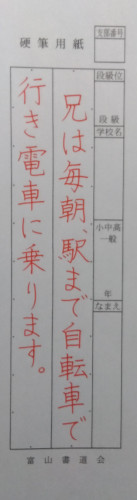 硬筆用紙
支部番号
段級位
段級
学校名
小中高一般
年
なまえ
兄は毎朝、駅まで自転車で
行き電車に乗ります。
富山書道会